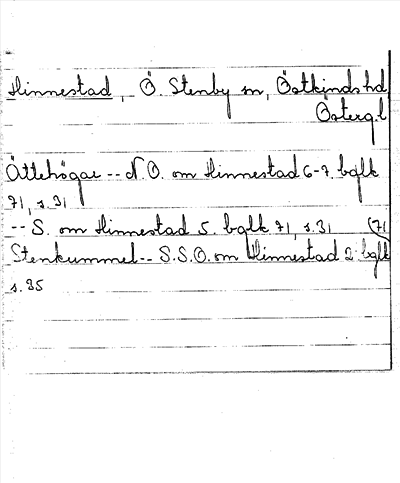 Hinnestad, Ö. Stenby sn, Östkinds hd
Österg.l
Ättehögar -- N.O. om Hinnestad 6-7. bglk
71, s. 31
-- S. om Hinnestad 5. bglk 71, s. 31 (71
Stenkummel -- S.S.O. om Hinnestad 2. bglk
s. 35